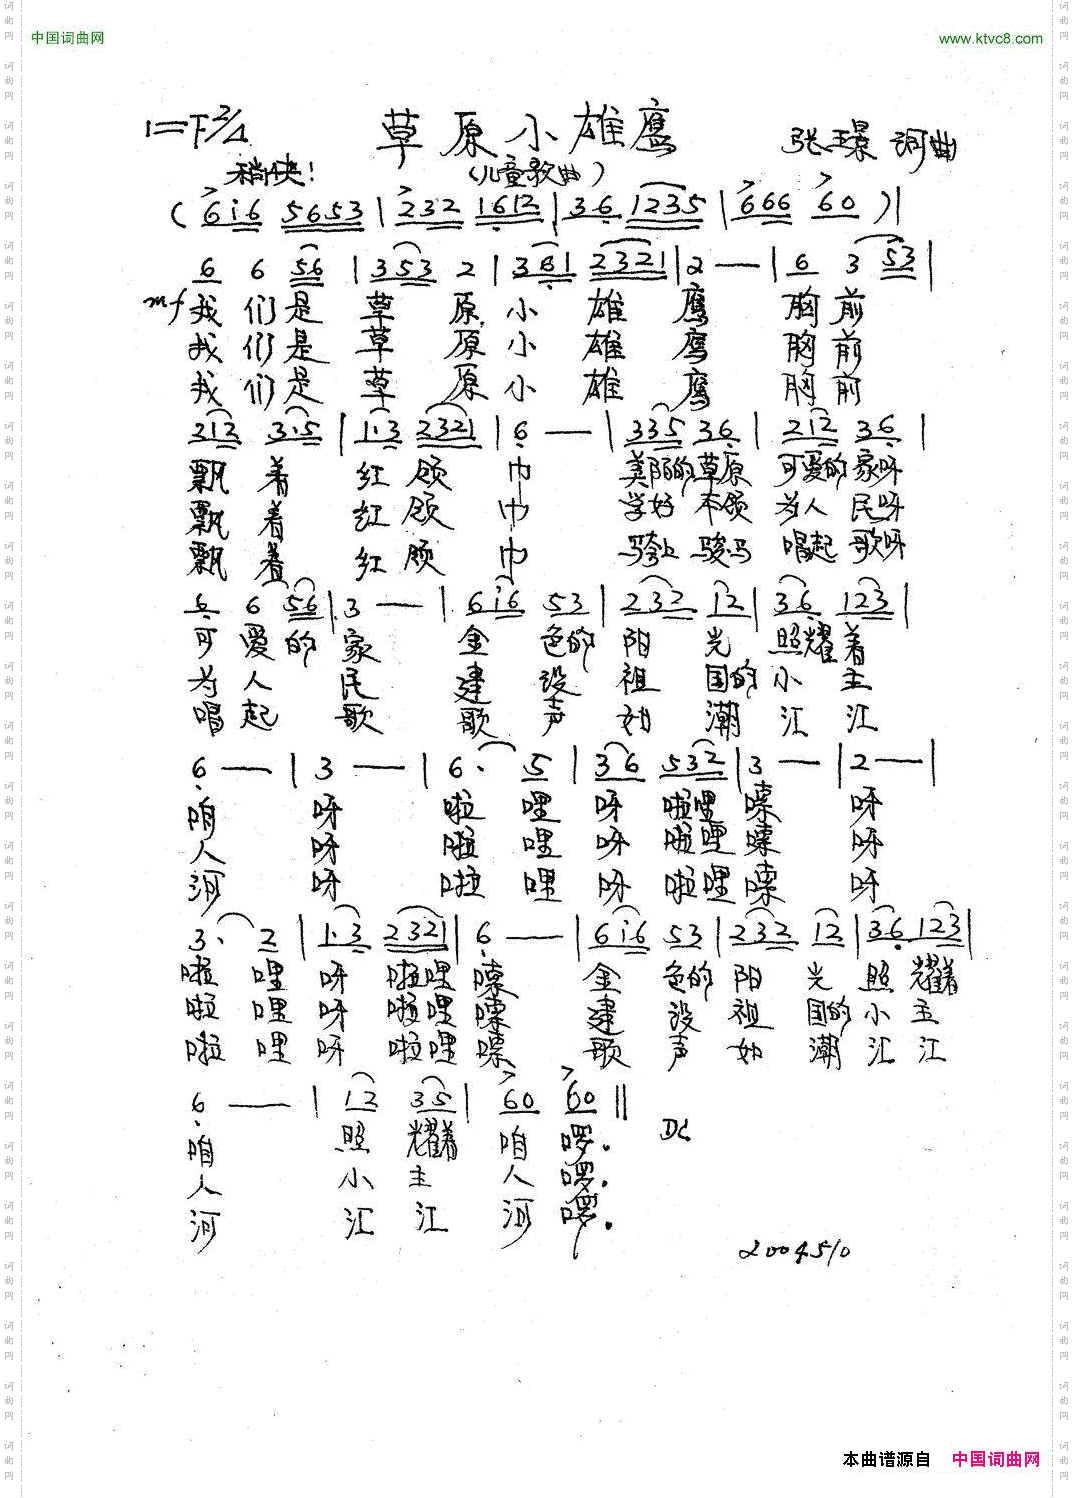 中国词曲网 www.ktvc8.com
1=F 2/4 草原小雄鹰 张璟 词曲
稍快! (儿童歌曲)
( 6i6 5653 | 232 1612 | 36 1235 | 666 60 ) |
6 6 56 | 353 2 | 361 2321 | 2 — | 6 3 53 |
mf 我们是草原小雄鹰 胸前
我们是草原小雄鹰 胸前
我们是草原小雄鹰 胸前
212 3·5 | 1·3 2321 | 6 — | 335 36 | 212 36 |
飘着红领巾 美丽的草原可爱的家呀
飘着红领巾 学好本领为人民呀
飘着红领巾 骑上骏马唱起歌呀
6 6 56 | 3 — | 6i6 53 | 232 12 | 36 123 |
可爱的家 金色的阳光照耀着
为人民 建设祖国的小主
唱起歌 歌声如潮汇江
6 — | 3 — | 6· 5 | 36 532 | 3 — | 2 — |
咱呀啦哩呀啦哩嗦呀
人呀啦哩呀啦哩嗦呀
河呀啦哩呀啦哩嗦呀
3· 2 | 1·3 2321 | 6 — | 6i6 53 | 232 12 | 36 123 |
啦哩呀啦哩嗦 金色的阳光照耀着
啦哩呀啦哩嗦 建设祖国的小主
啦哩呀啦哩嗦 歌声如潮汇江
6 — | 12 35 | 60 60 ‖ DC
咱 照耀着咱啰.
人 小主人啰.
河 汇江河啰.
2004.5/0
本曲谱源自 中国词曲网